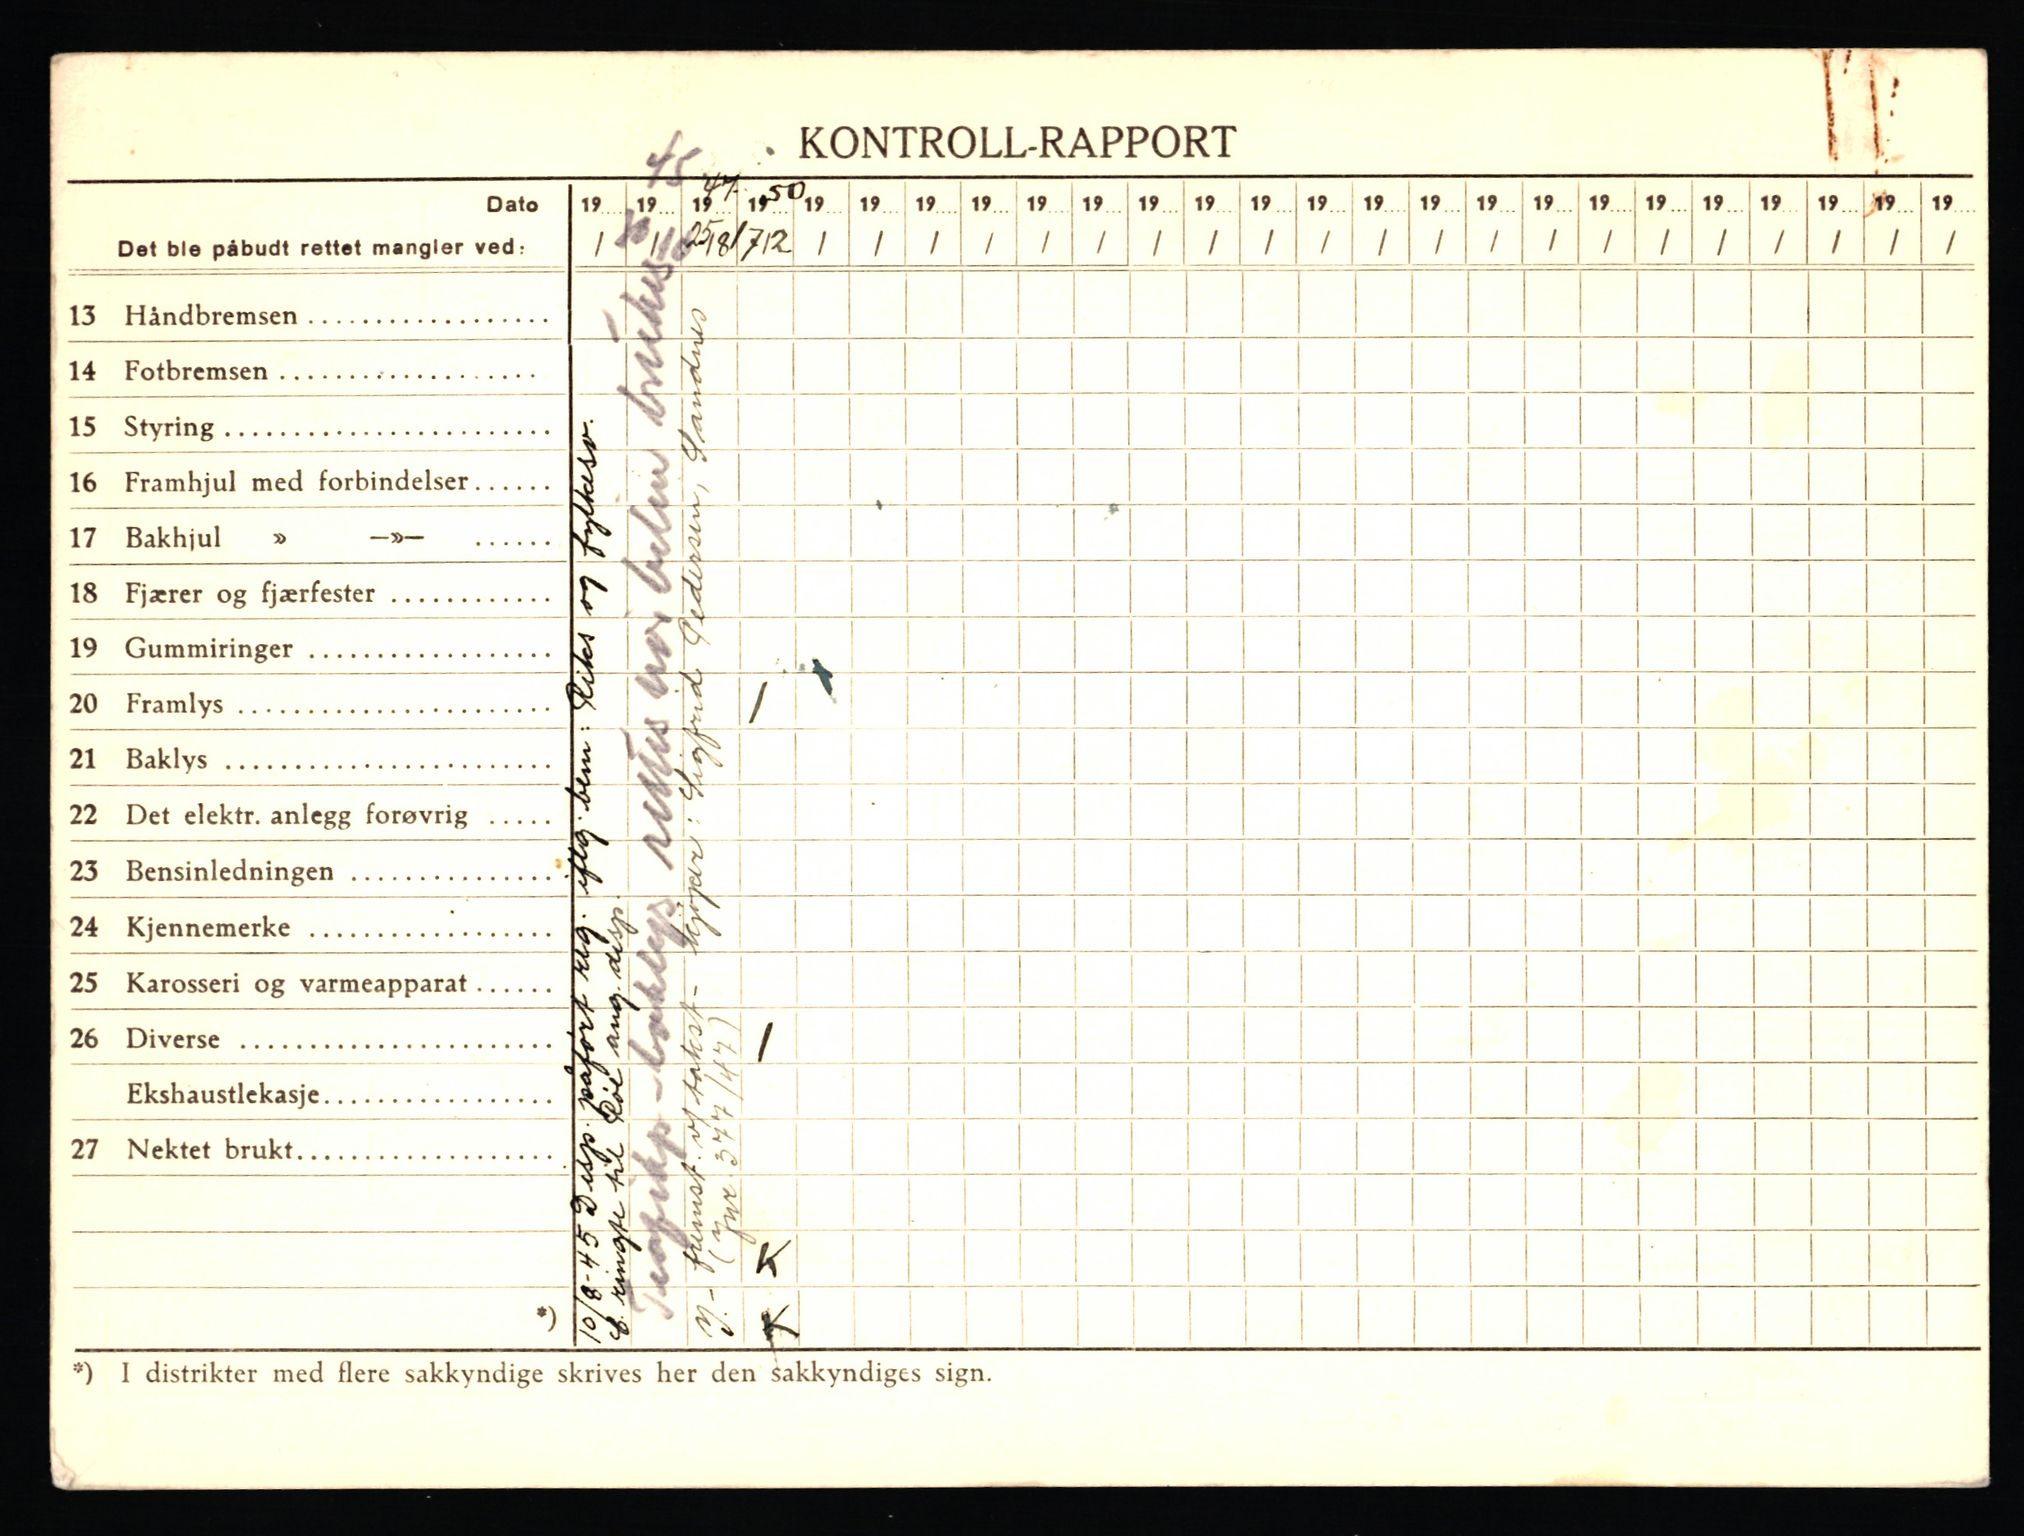 KONTROLL-RAPPORT
Dato 19.... 19.... 45 19.... 47 19.... 50 19.... 19.... 19.... 19.... 19.... 19.... 19.... 19.... 19.... 19.... 19.... 19.... 19.... 19.... 19.... 19.... 19.... 19.... 19.... 19.... 19....
Det ble påbudt rettet mangler ved: / / 25/8 17/12 / / / / / / / / / / / / / / / / / / / / /
13 Håndbremsen ..................
14 Fotbremsen ...................
15 Styring ........................
16 Framhjul med forbindelser......
17 Bakhjul » —»— ......
18 Fjærer og fjærfester ............
19 Gummiringer ..................
20 Framlys ....................... /
21 Baklys ........................
22 Det elektr. anlegg forøvrig .....
23 Bensinledningen ...............
24 Kjennemerke ..................
25 Karosseri og varmeapparat......
26 Diverse ....................... /
Ekshaustlekasje.................
27 Nektet brukt...................
*)
10/8-45 Disp. påført reg. iflg. bem: Riks og fylkesv.
ringte til ang. disp.
baklys når bilen brukes
Y.- fremst. v/takst - kjøper: Sigfrid Pedersen, Sandnes
(jnr. 377/47)
*) I distrikter med flere sakkyndige skrives her den sakkyndiges sign.